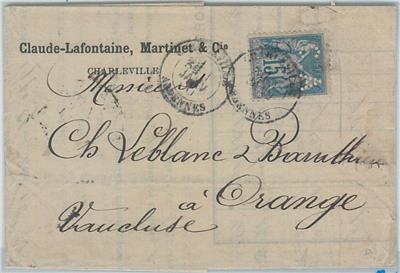 Claude-Lafontaine, Martinet & Cie
CHARLEVILLE
Monsieur
ARDENNES
ARDENNES
15
Ch Leblanc
à Orange
Vaucluse